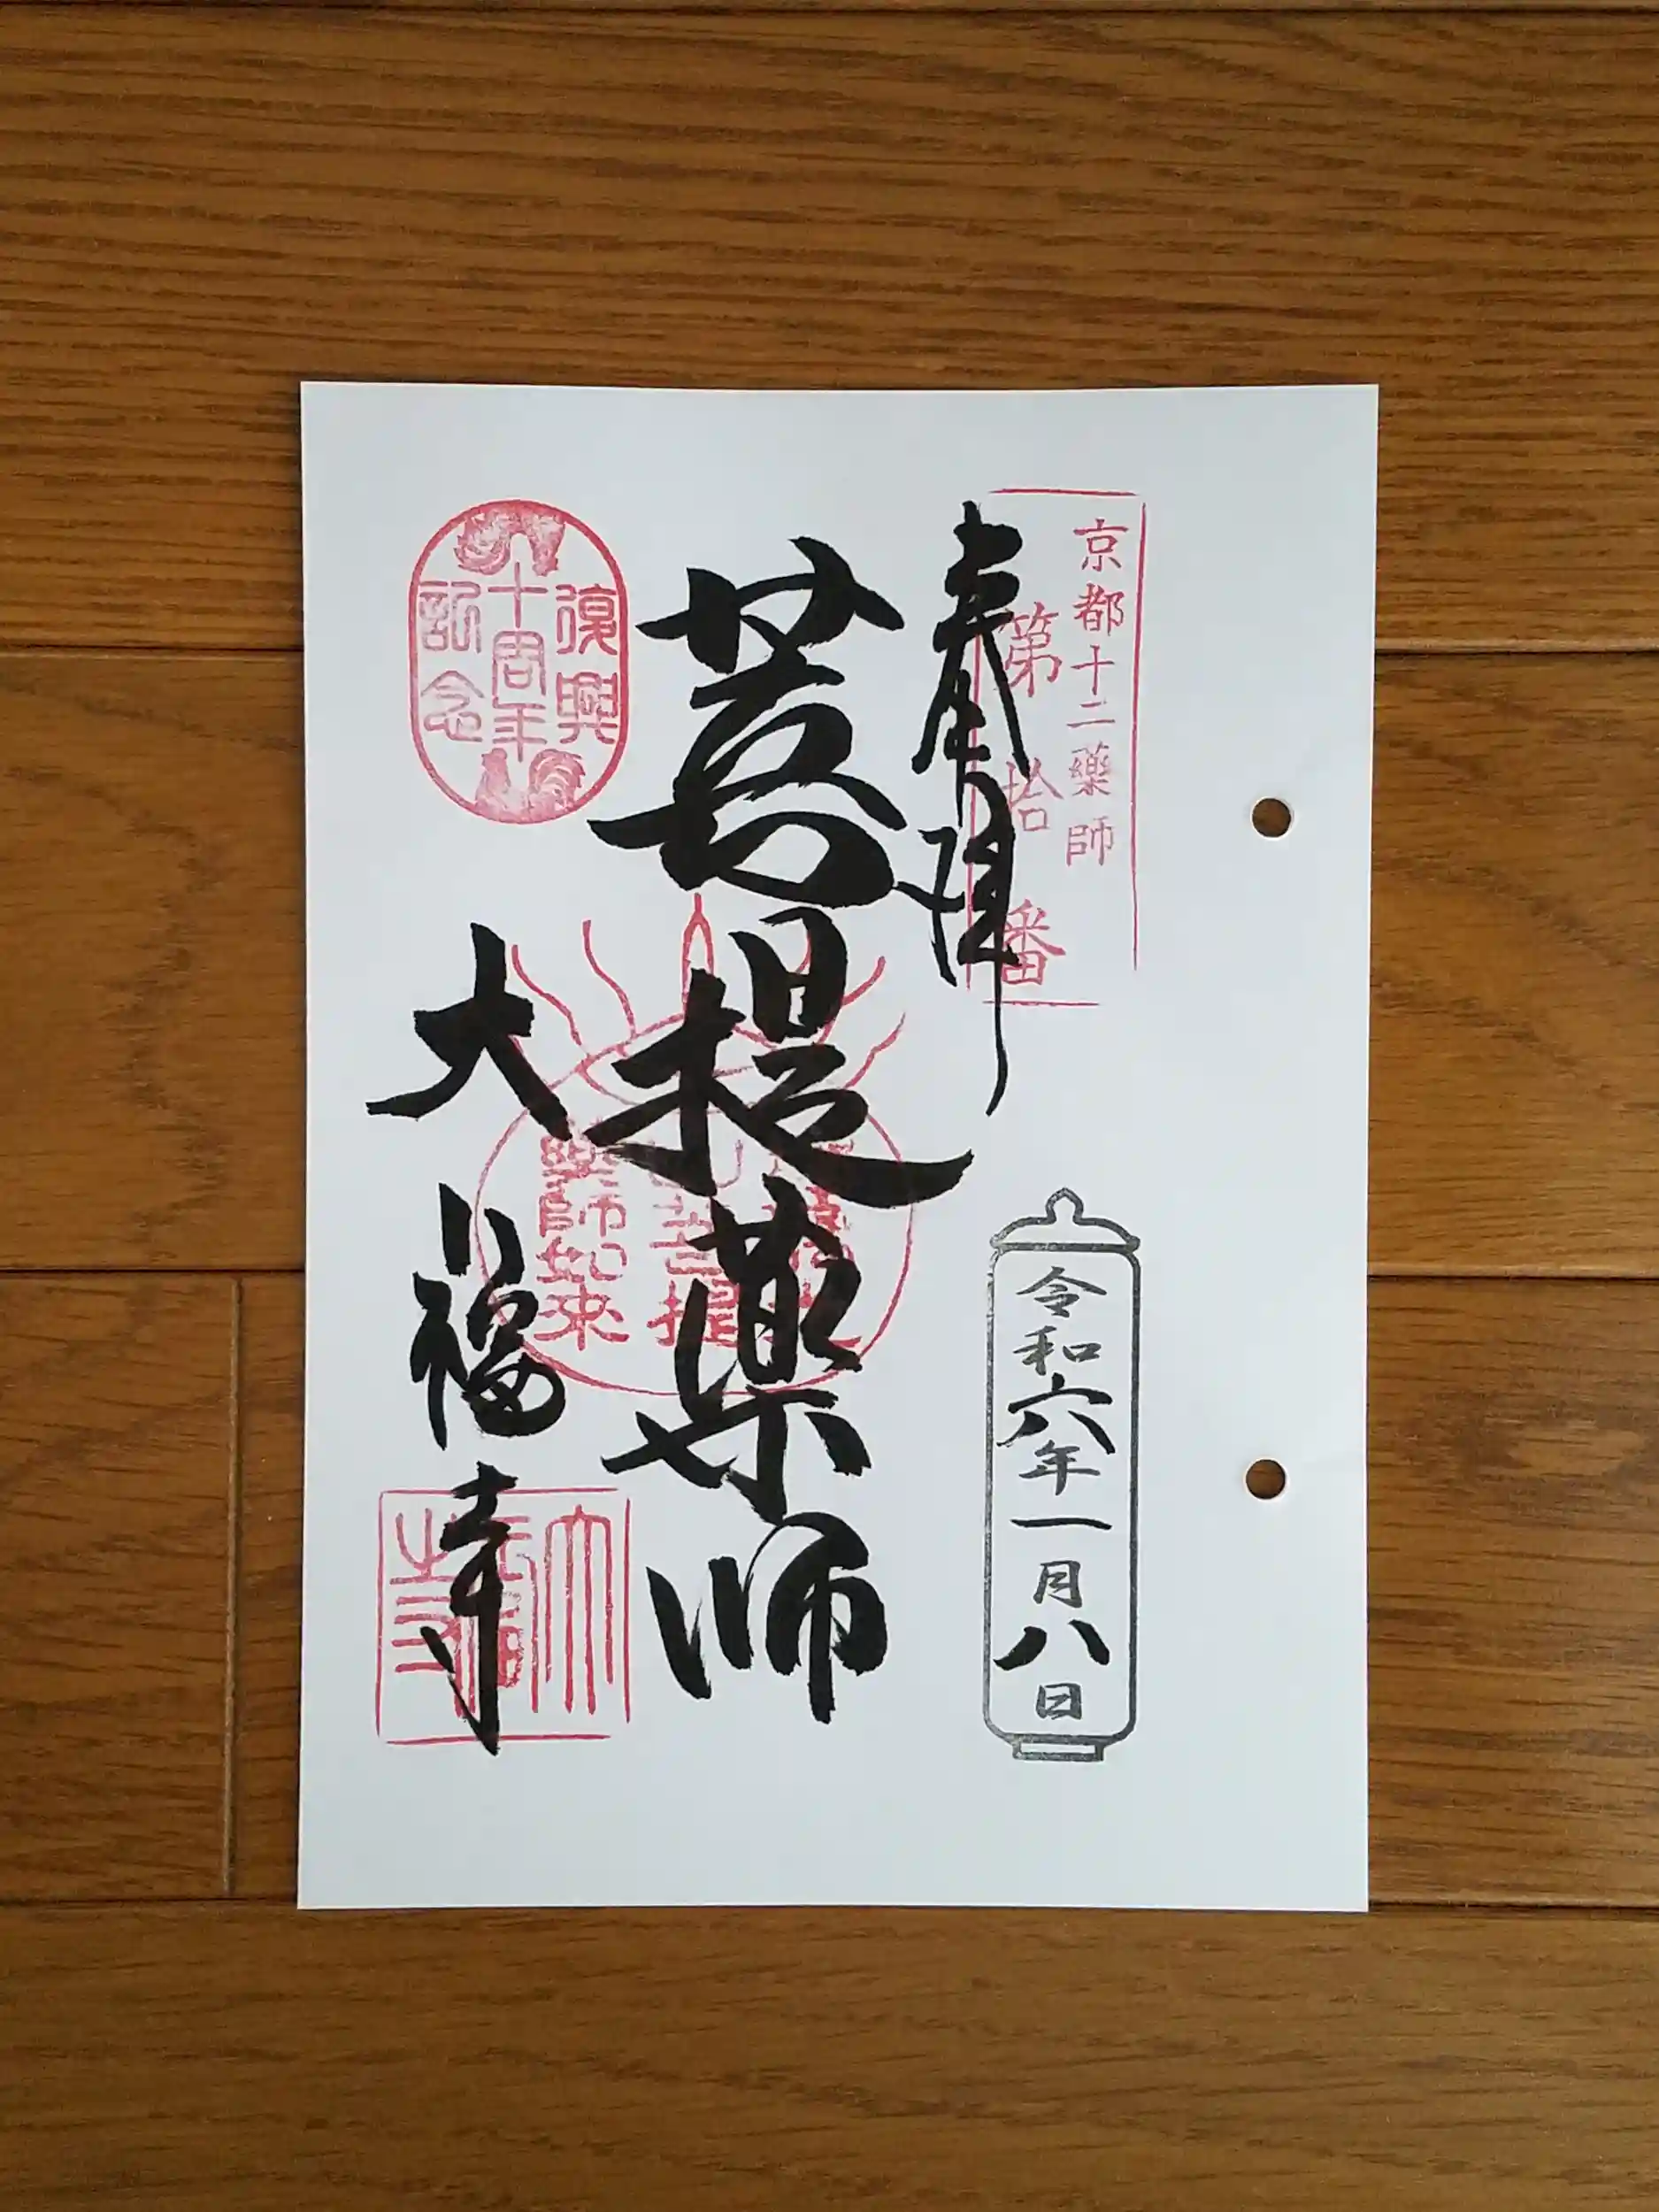 京都十二薬師
第拾番
奉拝
令和六年一月八日
菩提薬師
大福寺
復興
十周年
記念
菩提
藥師如来
大福寺